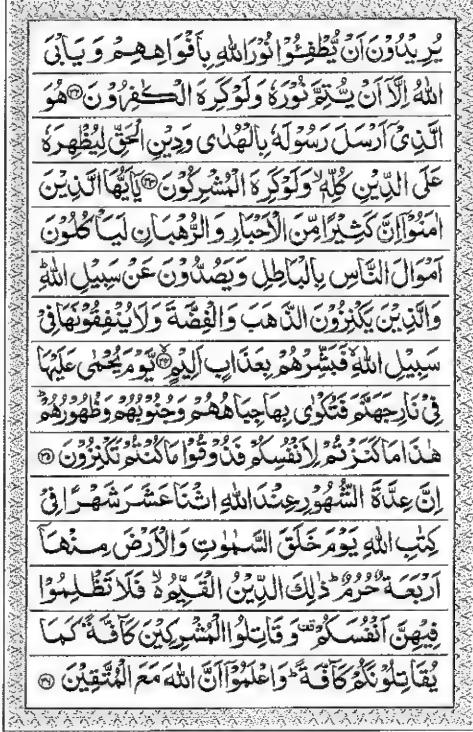 يُرِيْدُوْنَ اَنْ يُّطْفِـُٔوْا نُوْرَ اللّٰهِ بِاَفْوَاهِهِمْ وَيَاْبَى
اللّٰهُ اِلَّاۤ اَنْ يُّتِمَّ نُوْرَهٗ وَلَوْ كَرِهَ الْكٰفِرُوْنَ ۝۳۲ هُوَ
الَّذِيْۤ اَرْسَلَ رَسُوْلَهٗ بِالْهُدٰى وَدِيْنِ الْحَقِّ لِيُظْهِرَهٗ
عَلَى الدِّيْنِ كُلِّهٖۙ وَلَوْ كَرِهَ الْمُشْرِكُوْنَ ۝۳۳ يٰۤاَيُّهَا الَّذِيْنَ
اٰمَنُوْۤا اِنَّ كَثِيْرًا مِّنَ الْاَحْبَارِ وَالرُّهْبَانِ لَيَاْكُلُوْنَ
اَمْوَالَ النَّاسِ بِالْبَاطِلِ وَيَصُدُّوْنَ عَنْ سَبِيْلِ اللّٰهِؕ
وَالَّذِيْنَ يَكْنِزُوْنَ الذَّهَبَ وَالْفِضَّةَ وَلَا يُنْفِقُوْنَهَا فِيْ
سَبِيْلِ اللّٰهِۙ فَبَشِّرْهُمْ بِعَذَابٍ اَلِيْمٍ ۝۳۴ يَّوْمَ يُحْمٰى عَلَيْهَا
فِيْ نَارِ جَهَنَّمَ فَتُكْوٰى بِهَا جِبَاهُهُمْ وَجُنُوْبُهُمْ وَظُهُوْرُهُمْؕ
هٰذَا مَا كَنَزْتُمْ لِاَنْفُسِكُمْ فَذُوْقُوْا مَا كُنْتُمْ تَكْنِزُوْنَ ۝۳۵
اِنَّ عِدَّةَ الشُّهُوْرِ عِنْدَ اللّٰهِ اثْنَا عَشَرَ شَهْرًا فِيْ
كِتٰبِ اللّٰهِ يَوْمَ خَلَقَ السَّمٰوٰتِ وَالْاَرْضَ مِنْهَاۤ
اَرْبَعَةٌ حُرُمٌؕ ذٰلِكَ الدِّيْنُ الْقَيِّمُ۬ۙ فَلَا تَظْلِمُوْا
فِيْهِنَّ اَنْفُسَكُمْ وَقَاتِلُوا الْمُشْرِكِيْنَ كَآفَّةً كَمَا
يُقَاتِلُوْنَكُمْ كَآفَّةًؕ وَاعْلَمُوْۤا اَنَّ اللّٰهَ مَعَ الْمُتَّقِيْنَ ۝۳۶